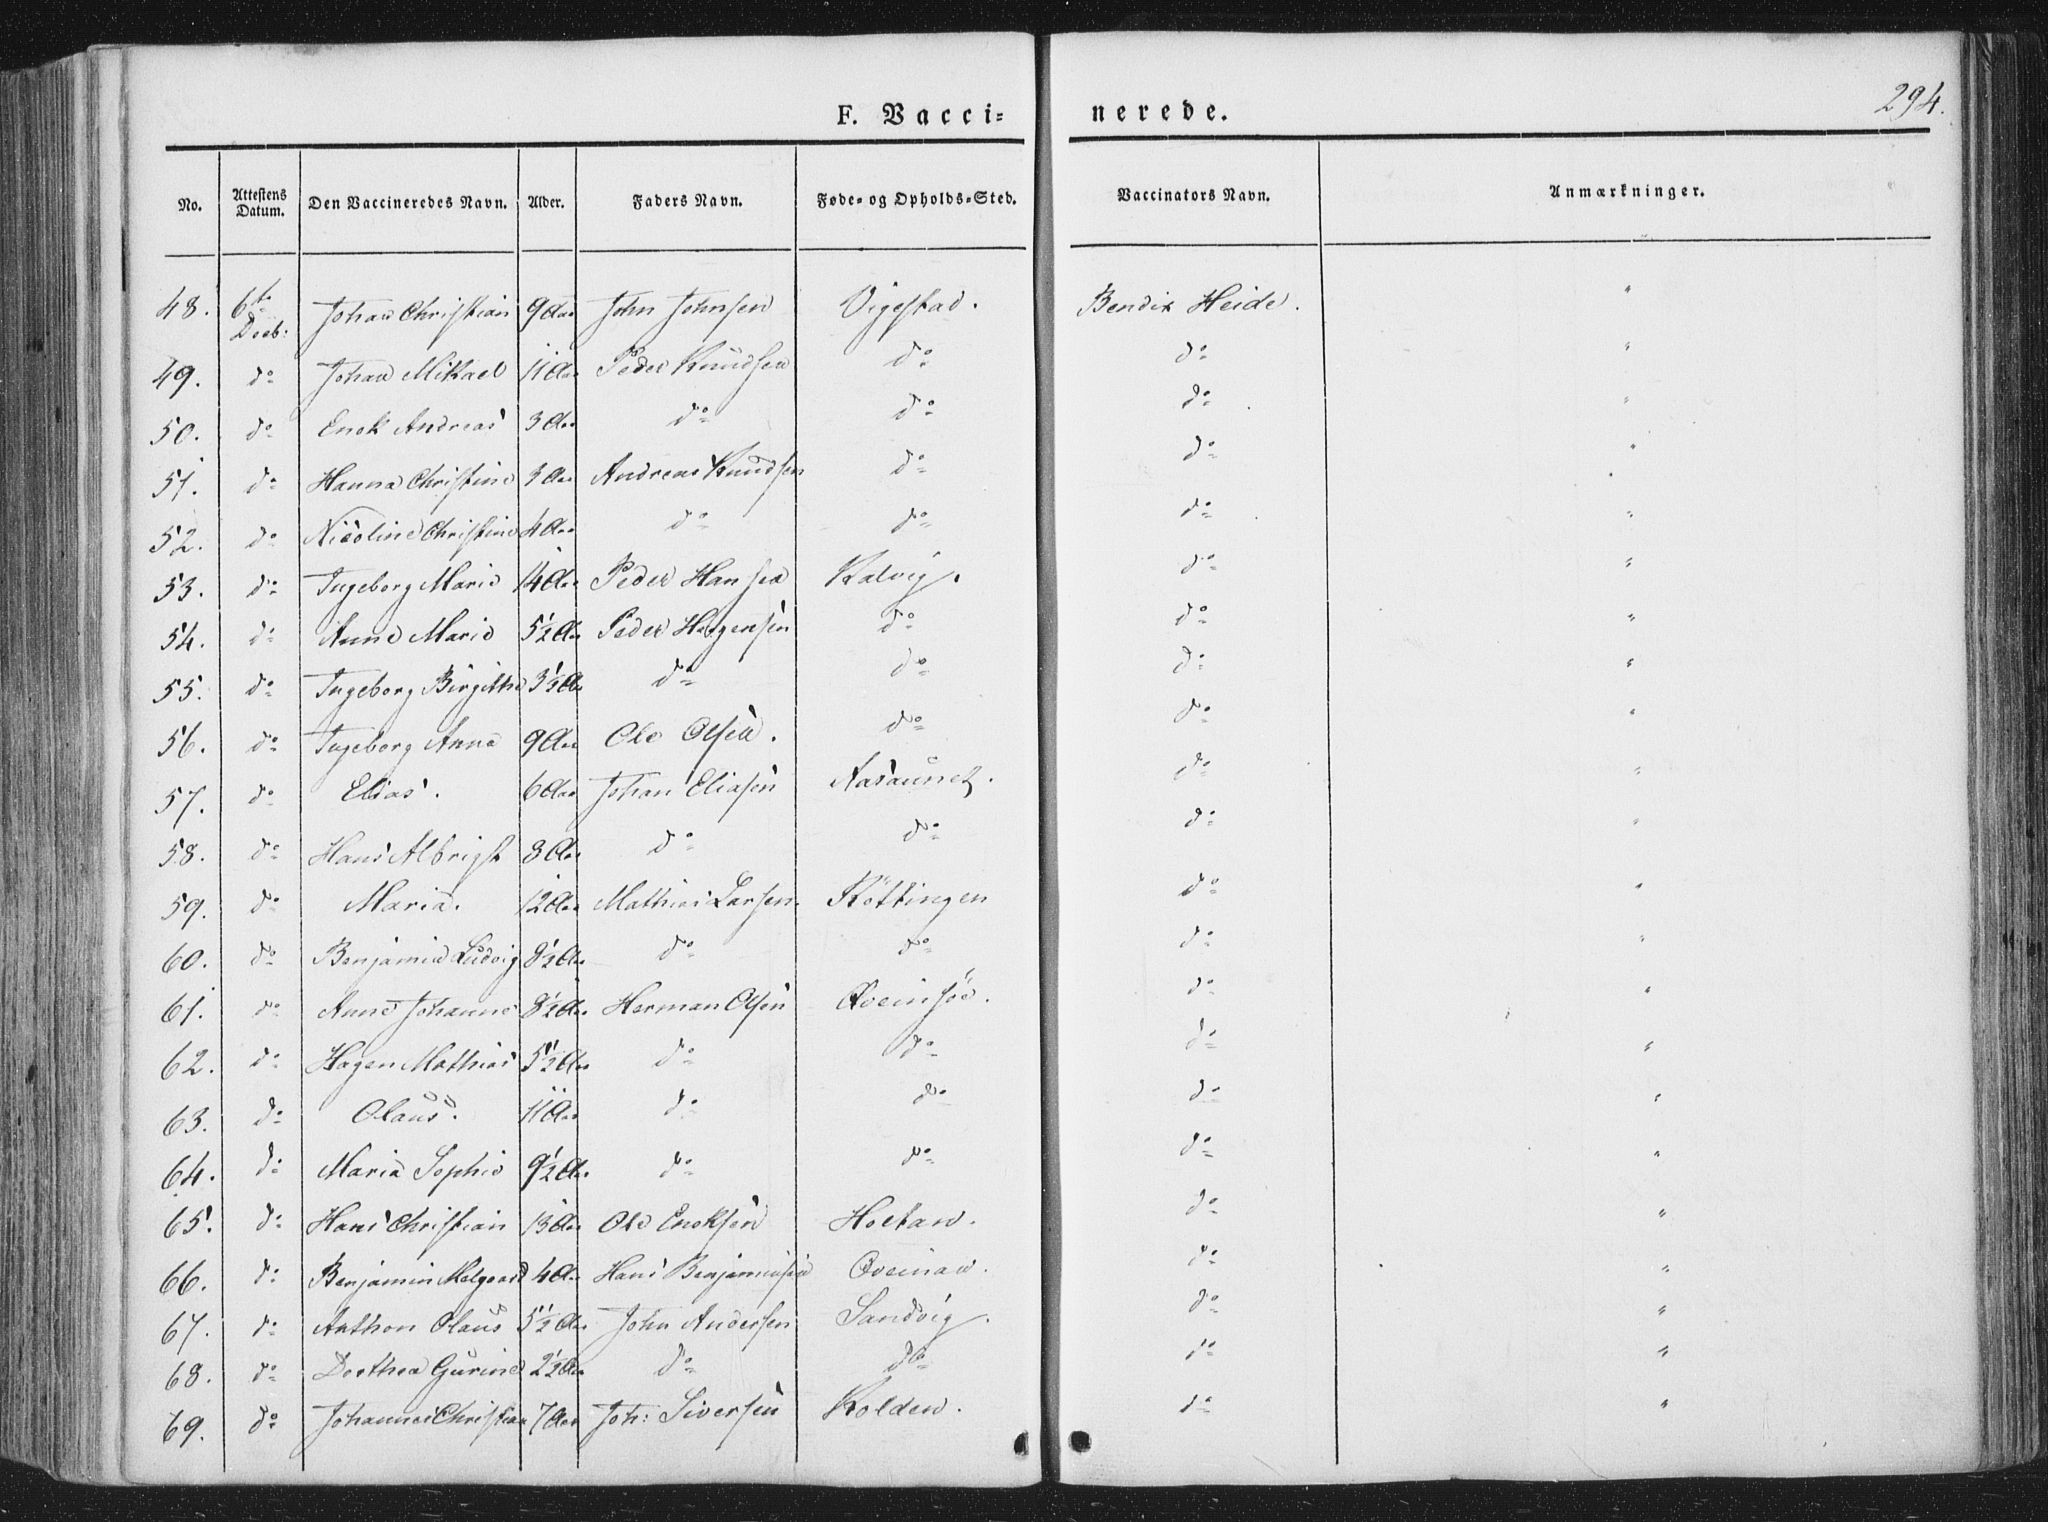 294.
F. Vacci= nerede.
No. Attestens Datum. Den Vaccineredes Navn. Alder. Faders Navn. Føde= og Opholds=Sted. Vaccinators Navn. Anmærkninger.
48. 6te Decb: Johan Christian 9 Aar John Johnsen Vigestad. Bendix Heide. "
49. do Johan Mikael 11 Aar Peder Knudsen do do "
50. do Enok Andreas 3 Aar do do do "
51. do Hanna Christine 3 Aar Andreas Knudsen do do "
52. do Nicoline Christine 4 Aar do do do "
53. do Ingeborg Marie 14 Aar Peder Hansen Kalvig. do "
54. do Anne Marie 5½ Aar Peder Hagensen do do "
55. do Ingeborg Birgithe 3½ Aar do do do "
56. do Ingeborg Anna 9 Aar Ole Olsen. do do "
57. do Elias. 6 Aar Johan Eliasen Aasaunet. do "
58. do Hans Albrigt 8 Aar do do do "
59. do Maria. 12 Aar Mathias Larsen. Kottingen do "
60. do Benjamin Ludvig 8½ Aar do do do "
61. do Anne Johanne 8½ Aar Herman Olsen do "
62. do Hagen Mathias 5½ Aar do do do "
63. do Olaus. 11 Aar do do do "
64. do Maria Sophie 9½ Aar do do do "
65. do Hans Christian 13 Aar Ole Enoksen do "
66. do Benjamin Melgaard 4 Aar Hans Benjaminsen do "
67. do Anthon Olaus 5½ Aar John Andersen Sandvig. do "
68. do Dorthea Gurine 2½ Aar do do do "
69. do Johannes Christian 7 Aar Joh: Siversen Kolden. do "